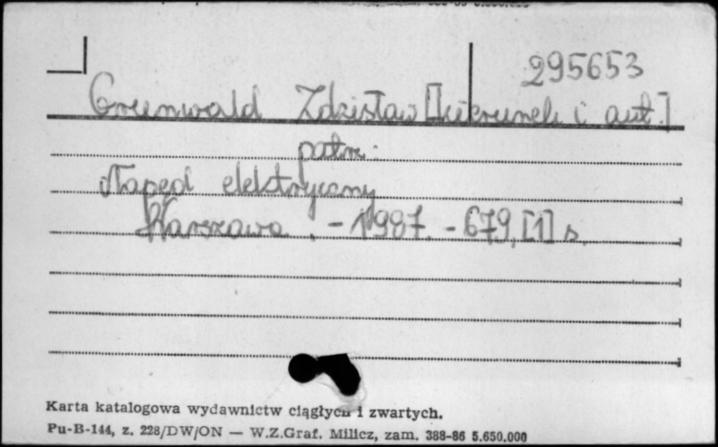 295653
Grunwald Zdzisław [kierunek i aut.]
patrz:
Napęd elektryczny
Warszawa. - 1987. - 679, [1] s.
Karta katalogowa wydawnictw ciągłych i zwartych.
Pu-B-144, z. 228/DW/ON — W.Z.Graf. Milicz, zam. 388-86 5.650.000